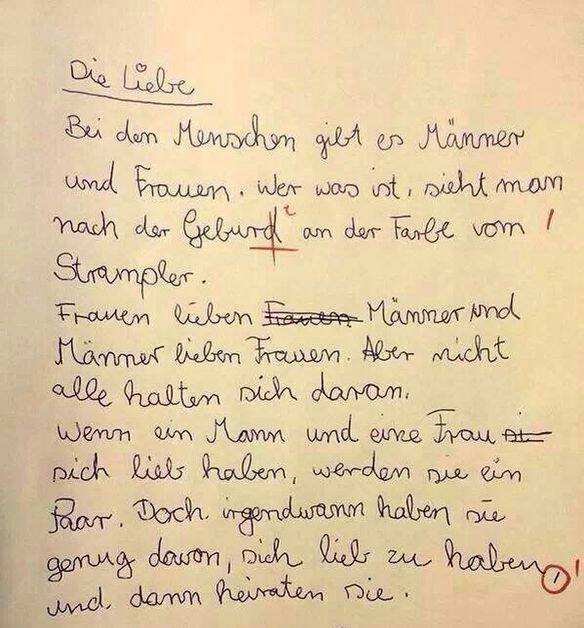 Die Liebe
Bei den Menschen gibt es Männer
und Frauen. Wer was ist, sieht man
nach der Geburd t an der Farbe vom
Strampler.
Frauen lieben Frauen Männer und
Männer lieben Frauen. Aber nicht
alle halten sich daran.
Wenn ein Mann und eine Frau si
sich lieb haben, werden sie ein
Paar. Doch irgendwann haben sie
genug davon, sich lieb zu haben,
und dann heiraten sie.